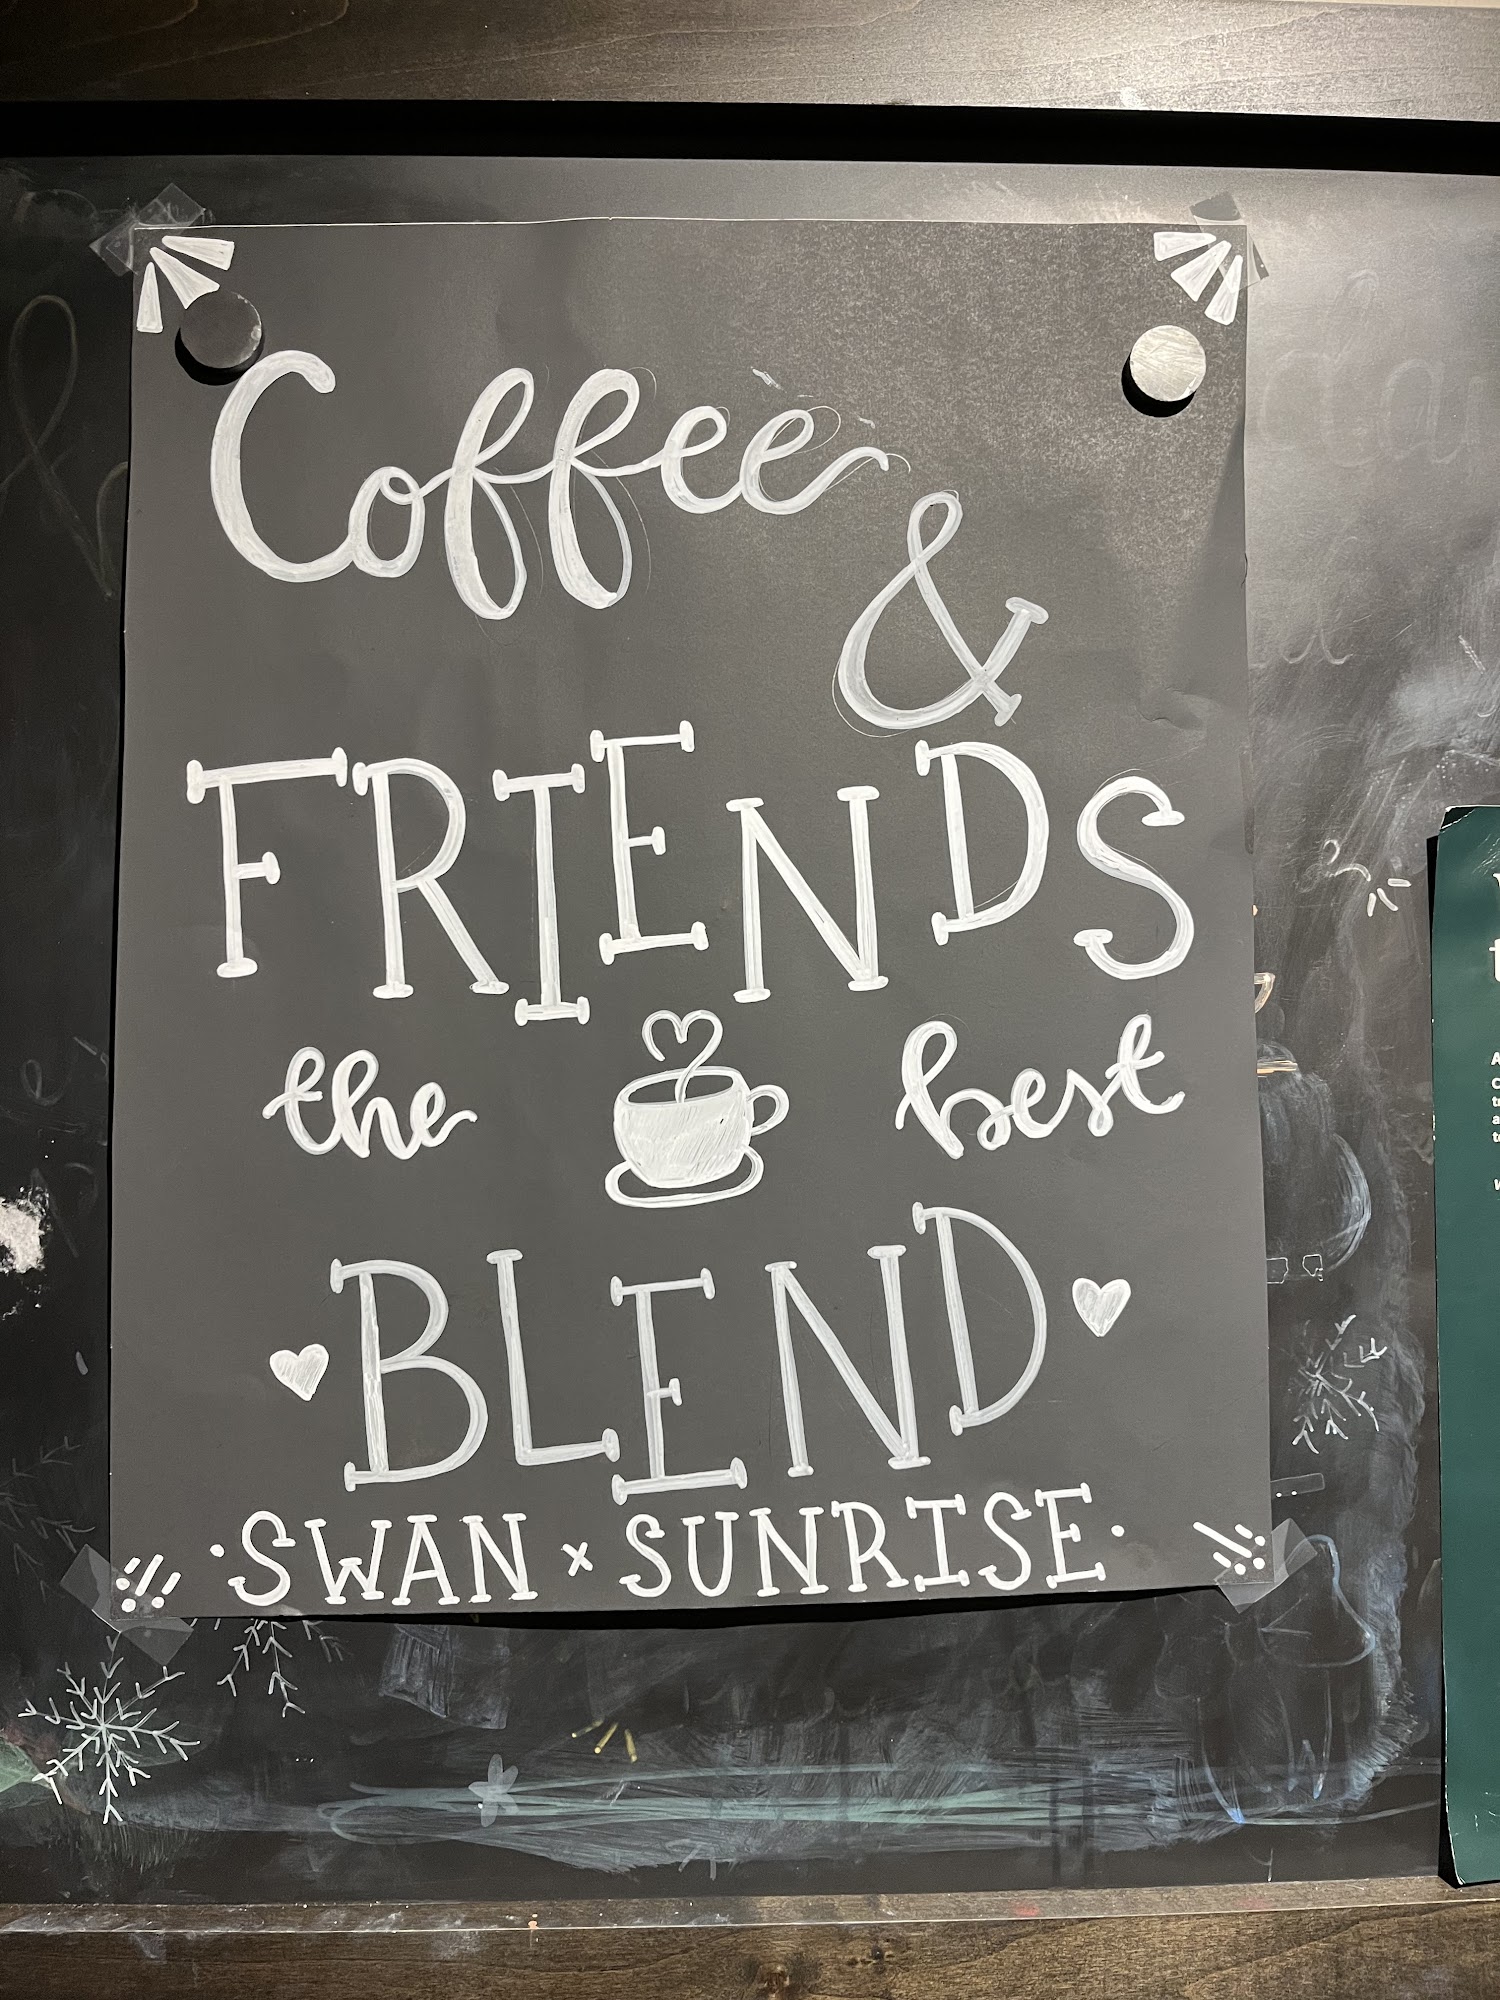 Coffee
&
FRIENDS
the best
BLEND
·SWAN x SUNRISE·